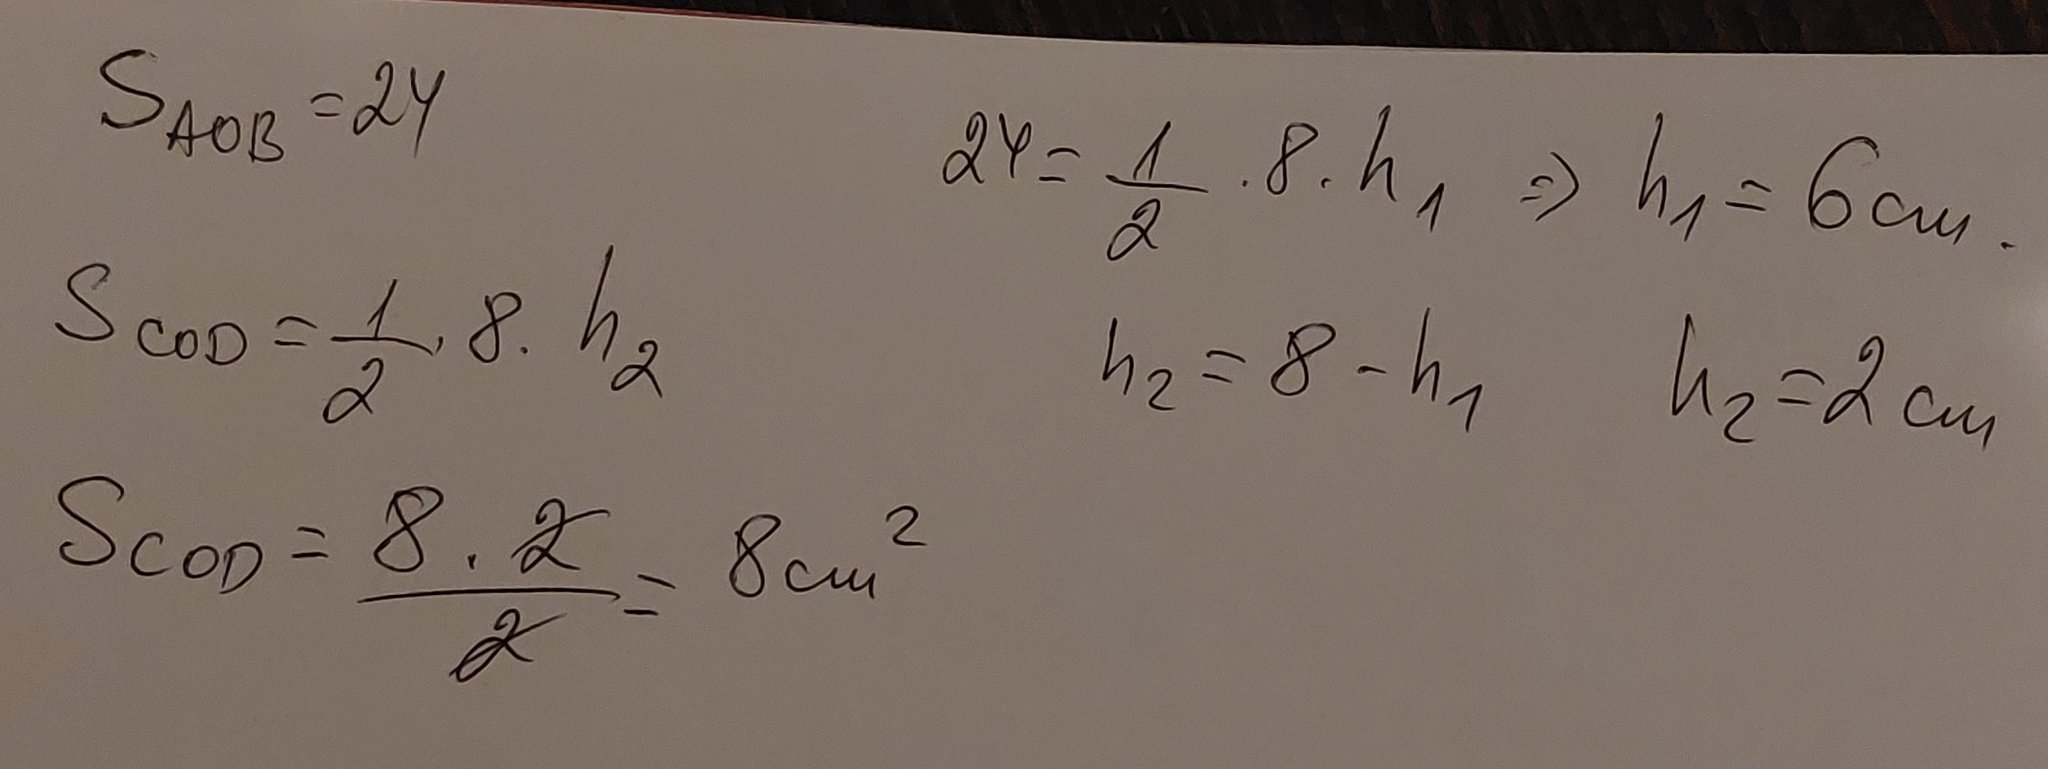 S_AOB = 24
24 = 1/2 · 8 · h₁ ⇒ h₁ = 6 cm.
S_COD = 1/2 · 8 · h₂
h₂ = 8 - h₁ h₂ = 2 cm
S_COD = 8 · 2 / 2 = 8 cm²